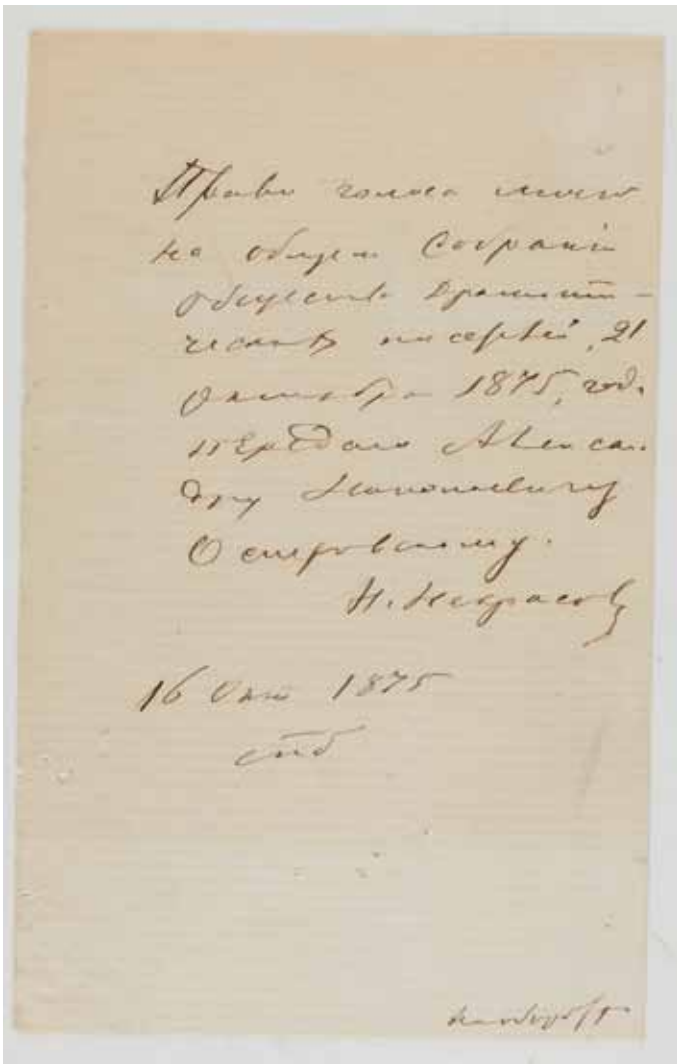 Право голоса моего
на общем Собрании
Общества Драмати-
ческих писателей, 21
Октября 1875, года
передаю Алексан-
дру Николаевичу
Островскому.
Н. Некрасов
16 Окт 1875
спб
на обороте